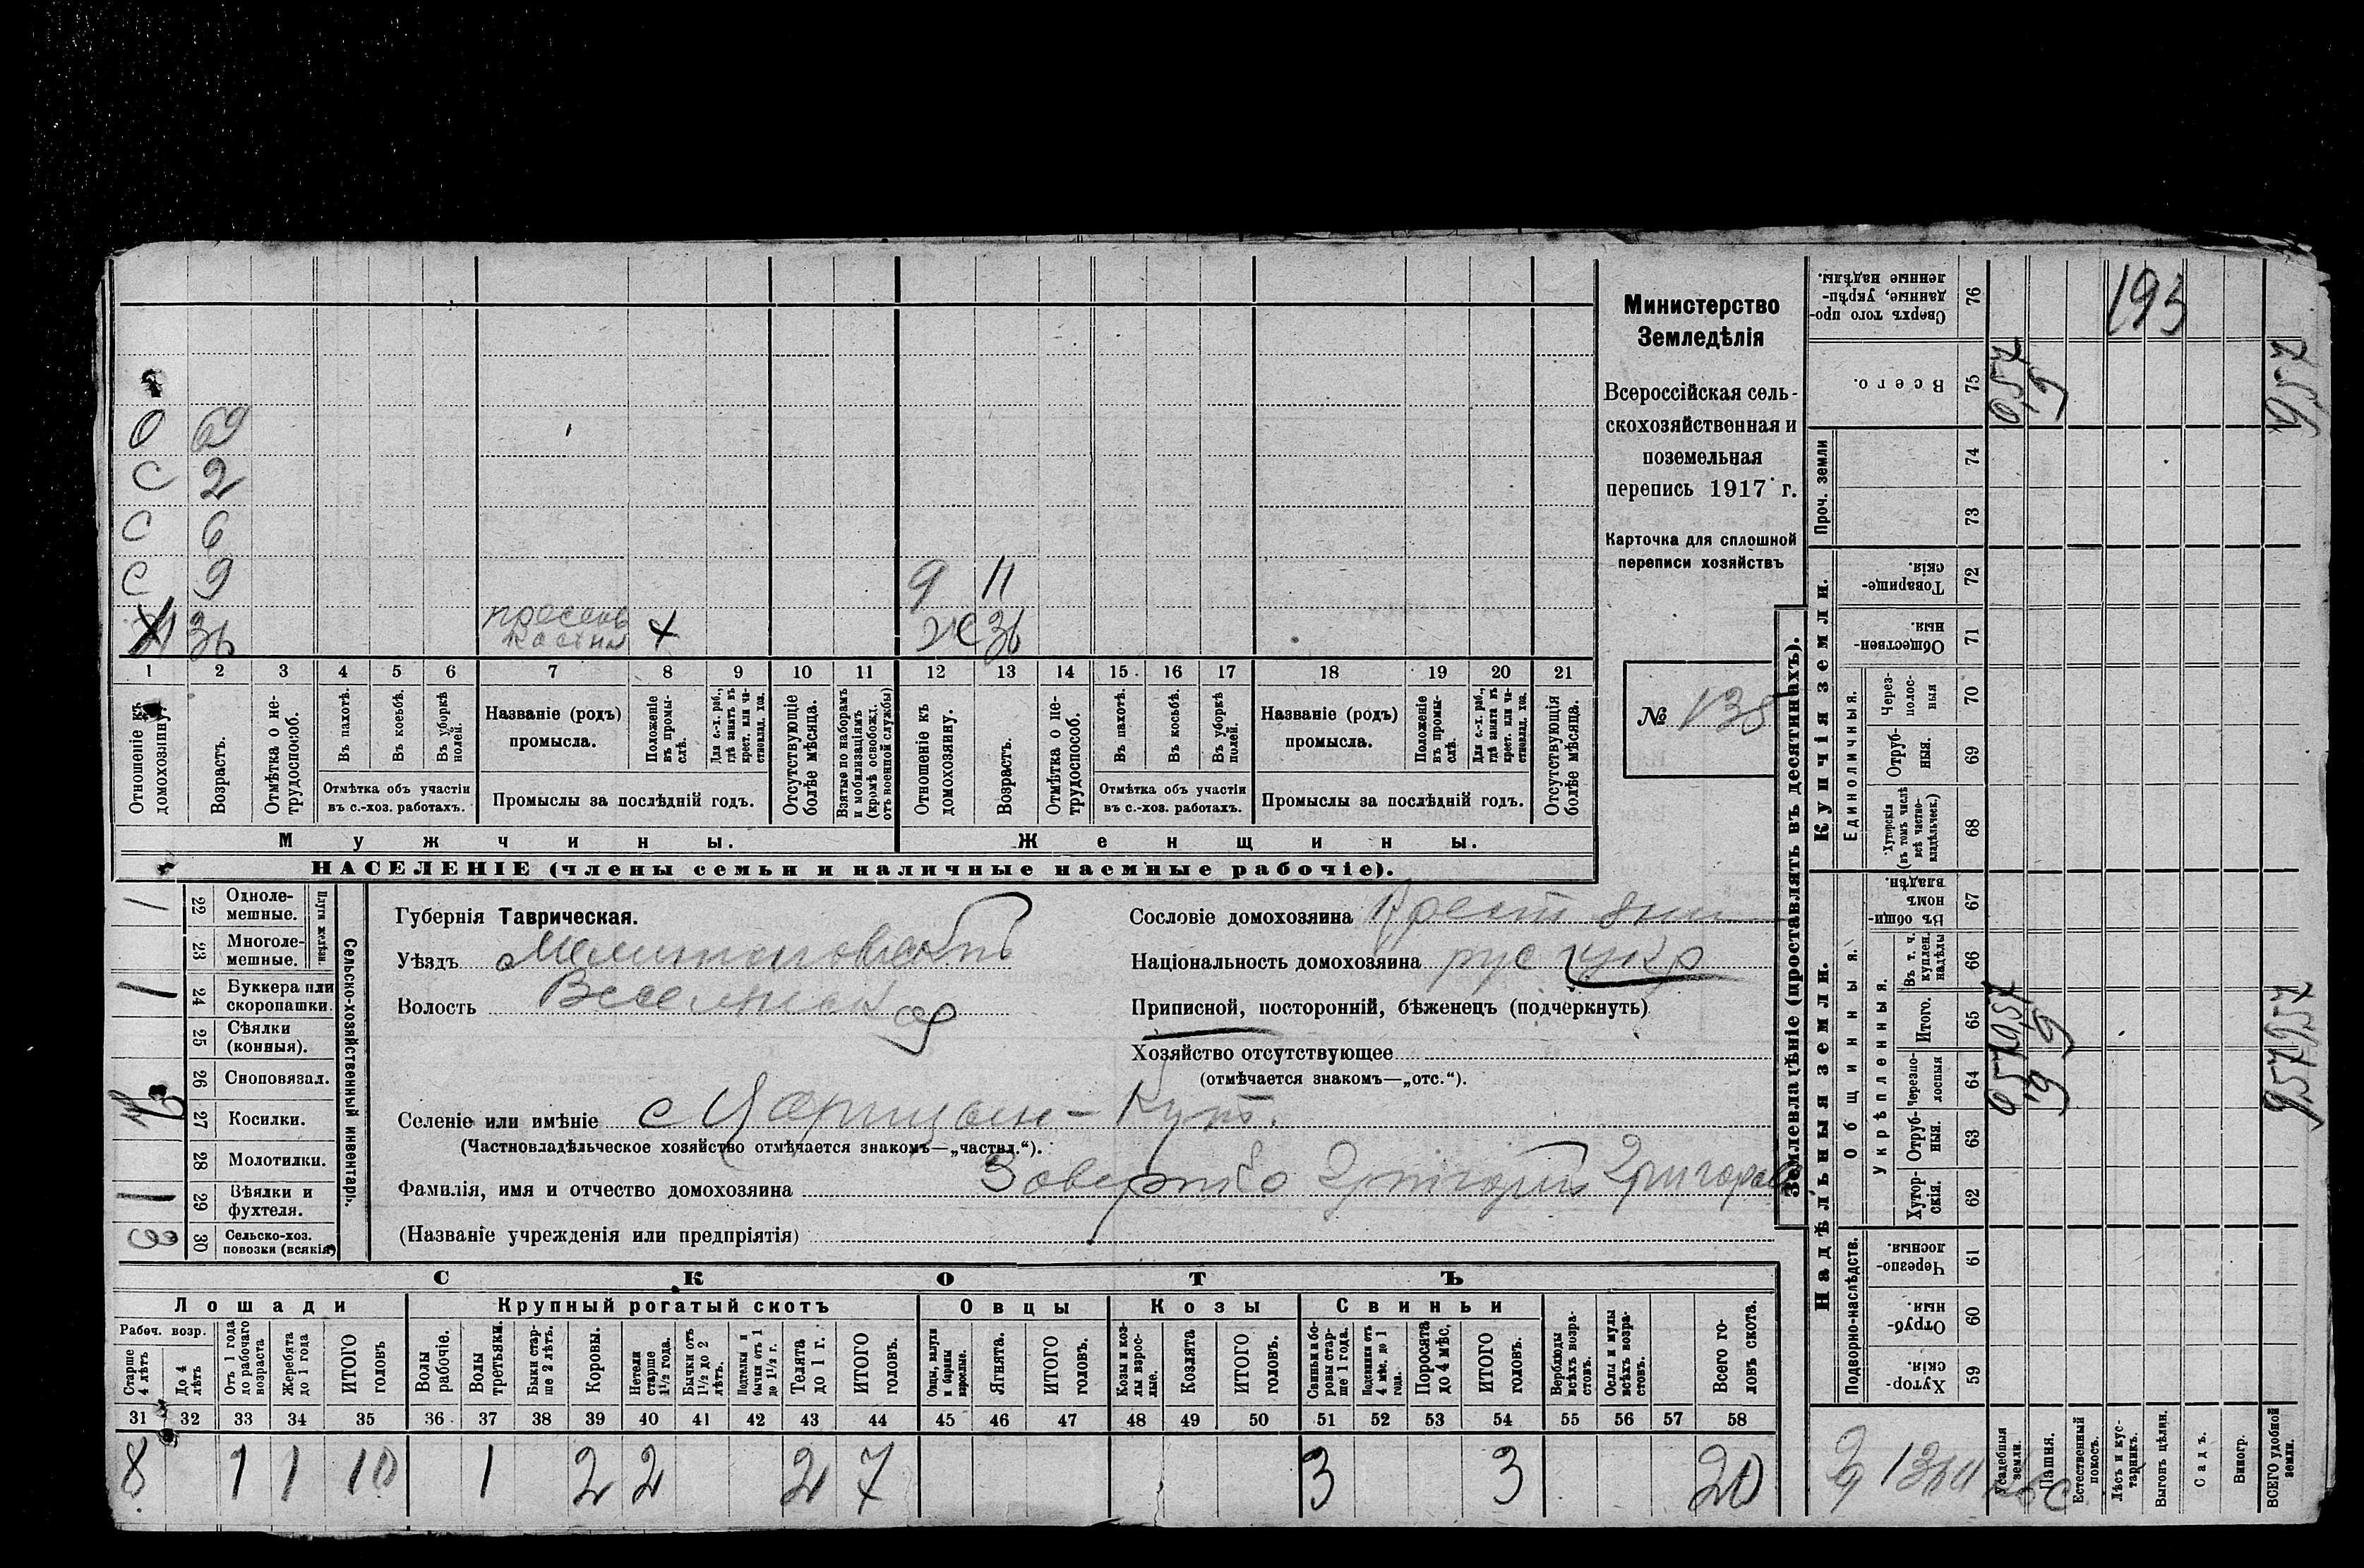 Министерство
Земледѣлія
Всероссійская сель-
скохозяйственная и
поземельная
перепись 1917 г.
Карточка для сплошной
переписи хозяйствъ
№ 138
О 69
С 2
С 6
С 9 9 11
Х 36 + ж 36
1 2 3 4 5 6 7 8 9 10 11 12 13 14 15 16 17 18 19 20 21
Отношеніе къ домохозяину.
Возрастъ.
Отмѣтка о не-трудоспособ.
Въ пахотѣ.
Въ косьбѣ.
Въ уборкѣ полей.
Отмѣтка объ участіи
въ с.-хоз. работахъ.
Названіе (родъ)
промысла.
Положеніе въ промы-слѣ.
Для с.-х. раб., гдѣ занятъ въ крест. или ча-стновлад. хоз.
Промыслы за послѣдній годъ.
Отсутствующіе болѣе мѣсяца.
Взятые по наборамъ и мобилизаціямъ (кромѣ освобожд. отъ военной службы)
Отношеніе къ домохозяину.
Возрастъ.
Отмѣтка о не-трудоспособ.
Въ пахотѣ.
Въ косьбѣ.
Въ уборкѣ полей.
Отмѣтка объ участіи
въ с.-хоз. работахъ.
Названіе (родъ)
промысла.
Положеніе въ промы-слѣ.
Для с.-х. раб., гдѣ занята въ крест. или ча-стновлад. хоз.
Промыслы за послѣдній годъ.
Отсутствующія болѣе мѣсяца.
Мужчины. Женщины.
НАСЕЛЕНІЕ (члены семьи и наличные наемные рабочіе).
Сельско-хозяйственный инвентарь.
Плуги желѣзн.
1 22 Одноле-мешные.
23 Многоле-мешные.
1 24 Буккера или скоропашки.
25 Сѣялки (конныя).
26 Сноповязал.
27 Косилки.
28 Молотилки.
1 29 Вѣялки и фухтеля.
3 30 Сельско-хоз. повозки (всякія)
Губернія Таврическая.
Уѣздъ Мелитопольскій
Волость Веселянская
Селеніе или имѣніе с Царицын-Кут.
(Частновладѣльческое хозяйство отмѣчается знакомъ—„частвл.“).
Фамилія, имя и отчество домохозяина Заверико Григорій Григорьев
(Названіе учрежденія или предпріятія)
Сословіе домохозяина Крестьянин
Національность домохозяина рус укр
Приписной, посторонній, бѣженецъ (подчеркнуть)
Хозяйство отсутствующее
(отмѣчается знакомъ—„отс.“).
СКОТЪ
Лошади Крупный рогатый скотъ Овцы Козы Свиньи
Рабоч. возр.
Старше 4 лѣтъ
До 4 лѣтъ
Отъ 1 года до рабочаго возраста
Жеребята до 1 года
ИТОГО головъ
Волы рабочіе.
Волы третьяки.
Быки стар-ше 2 лѣтъ.
Коровы.
Нетели старше 1½ года.
Бычки отъ 1½ до 2 лѣтъ.
Подтелки и бычки отъ 1 до 1½ г.
Телята до 1 г.
ИТОГО головъ.
Овцы, валухи и бараны взрослые.
Ягнята.
ИТОГО головъ.
Козы и коз-лы взрос-лые.
Козлята
ИТОГО головъ.
Свиньи и бо-ровы стар-ше 1 года.
Подсвинки отъ 4 мѣс. до 1 года.
Поросята до 4 мѣс.
ИТОГО головъ.
Верблюды всѣхъ возра-стовъ.
Ослы и мулы всѣхъ возра-стовъ.
Всего го-ловъ скота.
31 32 33 34 35 36 37 38 39 40 41 42 43 44 45 46 47 48 49 50 51 52 53 54 55 56 57 58
8 1 1 10 1 2 2 2 7 3 3 20
Землевладѣніе (проставлять въ десятинахъ).
Надѣльныя земли. Купчія земли. Проч. земли
Подворно-наслѣдств. Общинныя. Единоличныя.
Укрѣпленныя.
59 Хутор-скія.
60 Отруб-ныя.
61 Черезпо-лосныя.
62 Хутор-скія.
63 Отруб-ныя.
64 Черезпо-лосныя
65 Итого.
66 Въ т. ч. куплен. надѣлы
67 Въ общин-номъ владѣн.
68 Хуторскія (въ томъ числѣ всѣ частно-владѣльческ.)
69 Отруб-ныя.
70 Через-полос-ныя
71 Обществен-ныя.
72 Товарище-скія.
73
74
75 Всего.
76 Сверхъ того про-данные, укрѣп-ленные надѣлы.
Усадебныя земли. 057 057 057
Пашня. 9 9 9
Естественный покосъ.
Лѣсъ и кус-тарникъ.
Выгонъ цѣлин.
Садъ.
Виногр.
ВСЕГО удобной земли. 957 957 957
193